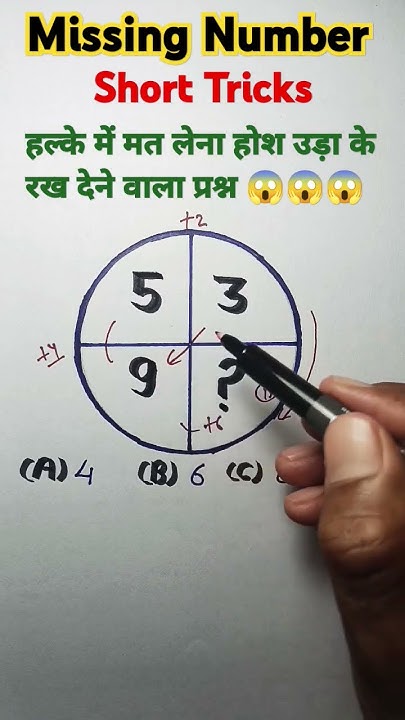 Missing Number
Short Tricks
हल्के में मत लेना होश उड़ा के
रख देने वाला प्रश्न 😱😱😱
+2
5 3
+4
9 ?
+6
(A) 4 (B) 6 (C)